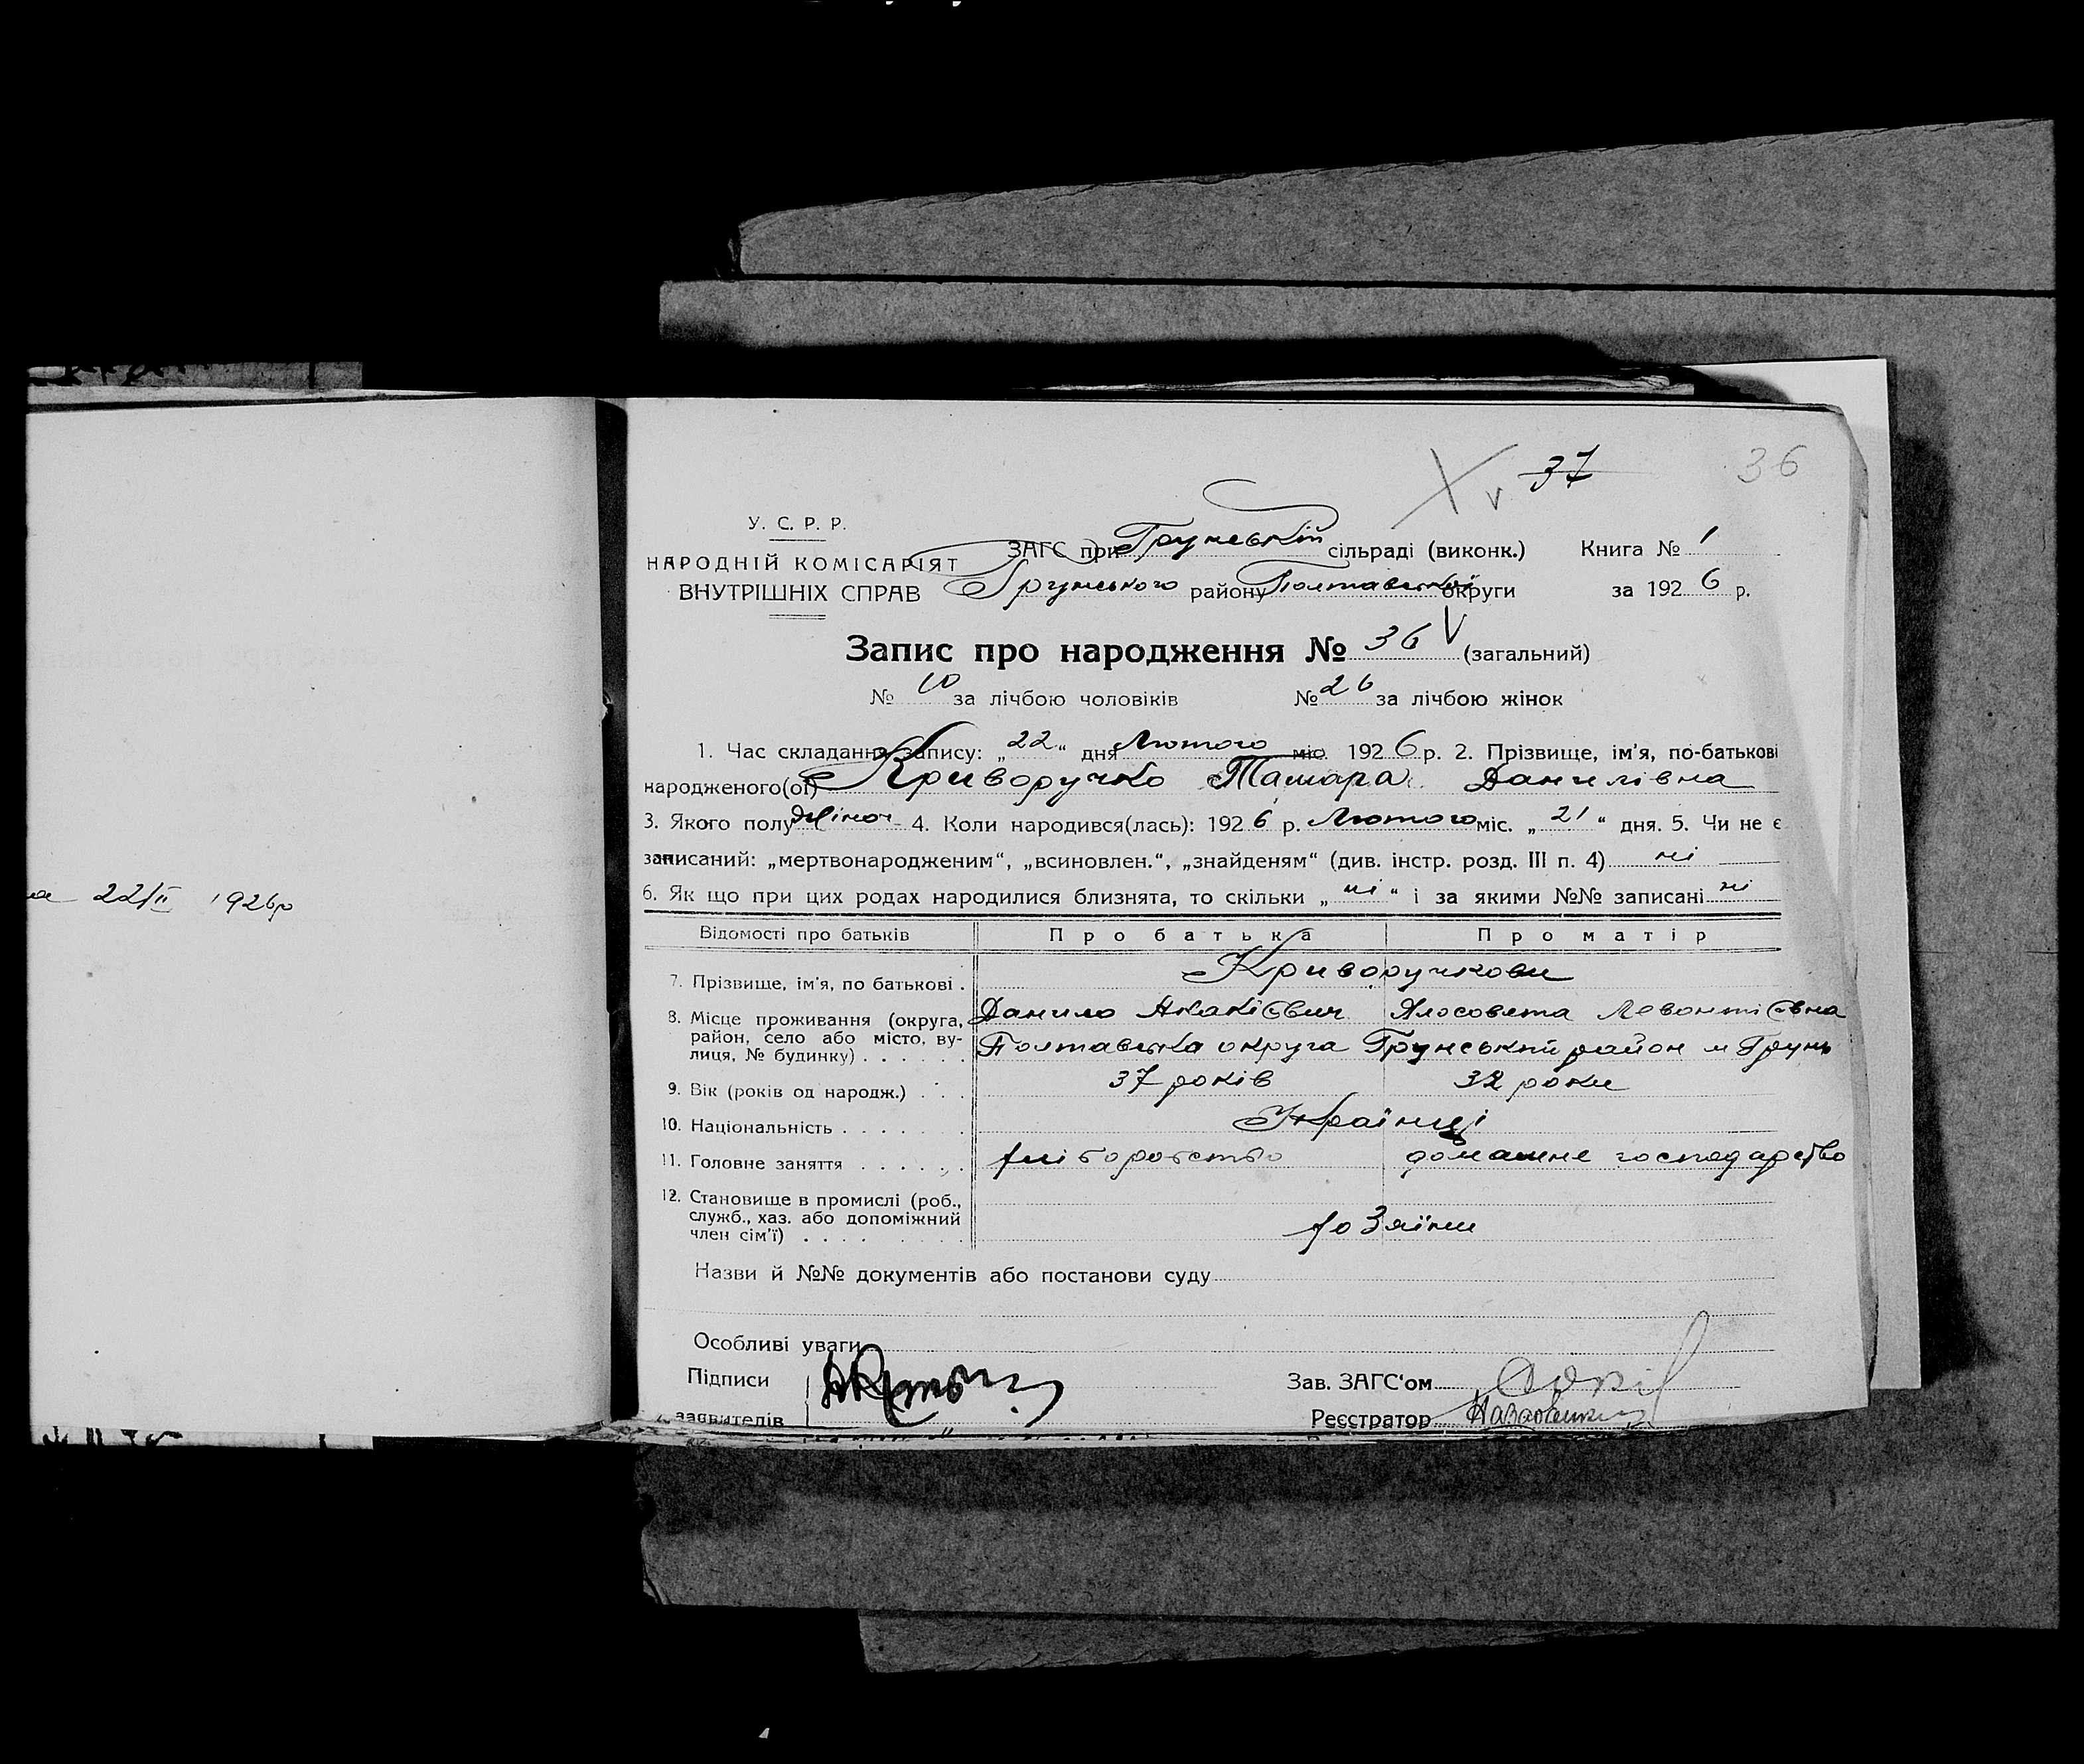 37
36
У. С. Р. Р.
НАРОДНІЙ КОМІСАРІЯТ
ВНУТРІШНІХ СПРАВ
ЗАГС при Грунський сільраді (виконк.) Книга № 1
Грунського району Полтавської округи за 1926 р.
Запис про народження № 36 (загальний)
№ 10 за лічбою чоловіків № 26 за лічбою жінок
1. Час складання запису: „22“ дня Лютого міс. 1926 р. 2. Прізвище, ім'я, по-батькові
народженого(ої) Криворучко Тамара Данилівна
3. Якого полу жіноч. 4. Коли народився(лась): 1926 р. Лютого міс. „21“ дня. 5. Чи не є
записаний: „мертвонародженим“, „всиновлен.“, „знайденям“ (див. інстр. розд. III п. 4) ні
6. Як що при цих родах народилися близнята, то скільки „ні“ і за якими №№ записані ні
а 22/II 1926р
Відомості про батьків Про батька Про матір
7. Прізвище, ім'я, по батькові . Криворучкови
Данило Акакієвич Єлосовета Левонтієвна
8. Місце проживання (округа, район, село або місто, вулиця, № будинку) . . . . . . Полтавська округа Грунський район м Грунь
9. Вік (років од народж.) . . . 37 років 32 роки
10. Національність . . . . . . . Українці
11. Головне заняття . . . . . . хліборобство домашне господарство
12. Становище в промислі (роб.,
служб., хаз. або допоміжний
член сім'ї) . . . . . . . . . хозяїни
Назви й №№ документів або постанови суду
Особливі уваги
Підписи Зав. ЗАГС'ом
заявителів Реєстратор